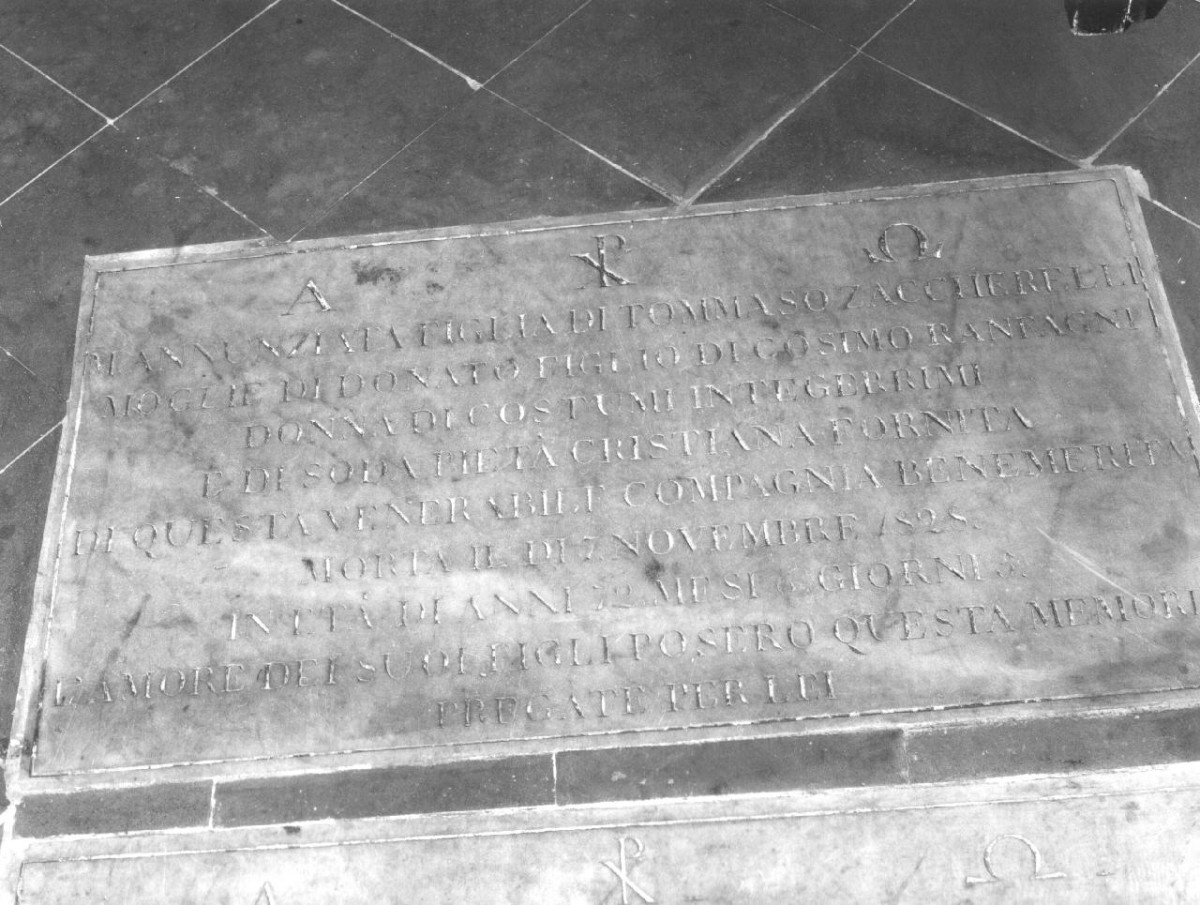 Α ☧ Ω
DI ANNUNZIATA FIGLIA DI TOMMASO ZACCHERELLI
MOGLIE DI DONATO FIGLIO DI COSIMO RANFAGNI
DONNA DI COSTUMI INTEGERRIMI
E DI SODA PIETÀ CRISTIANA FORNITA
DI QUESTA VENERABILE COMPAGNIA BENEMERITA
MORTA IL DI 7. NOVEMBRE 1828.
IN ETÀ DI ANNI 72. MESI GIORNI
L'AMORE DEI SUOI FIGLI POSERO QUESTA MEMORI
PREGATE PER LEI
Α ☧ Ω